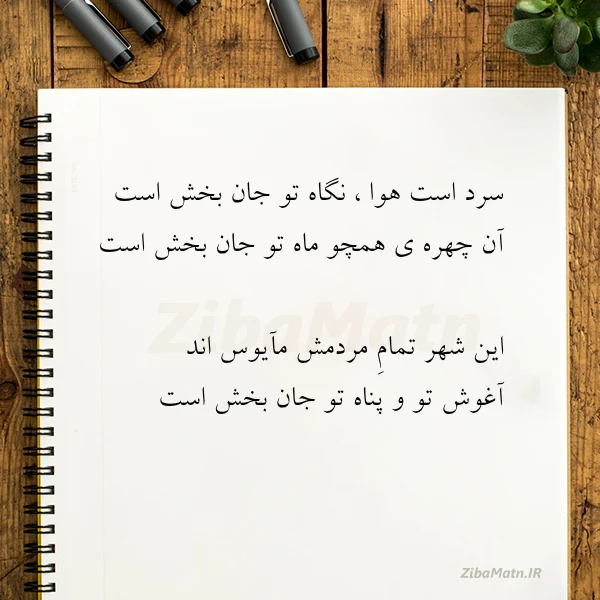 سرد است هوا ، نگاه تو جان بخش است
آن چهره ی همچو ماه تو جان بخش است
ZibaMatn
این شهر تمامِ مردمش مآیوس اند
آغوش تو و پناه تو جان بخش است
ZibaMatn.IR